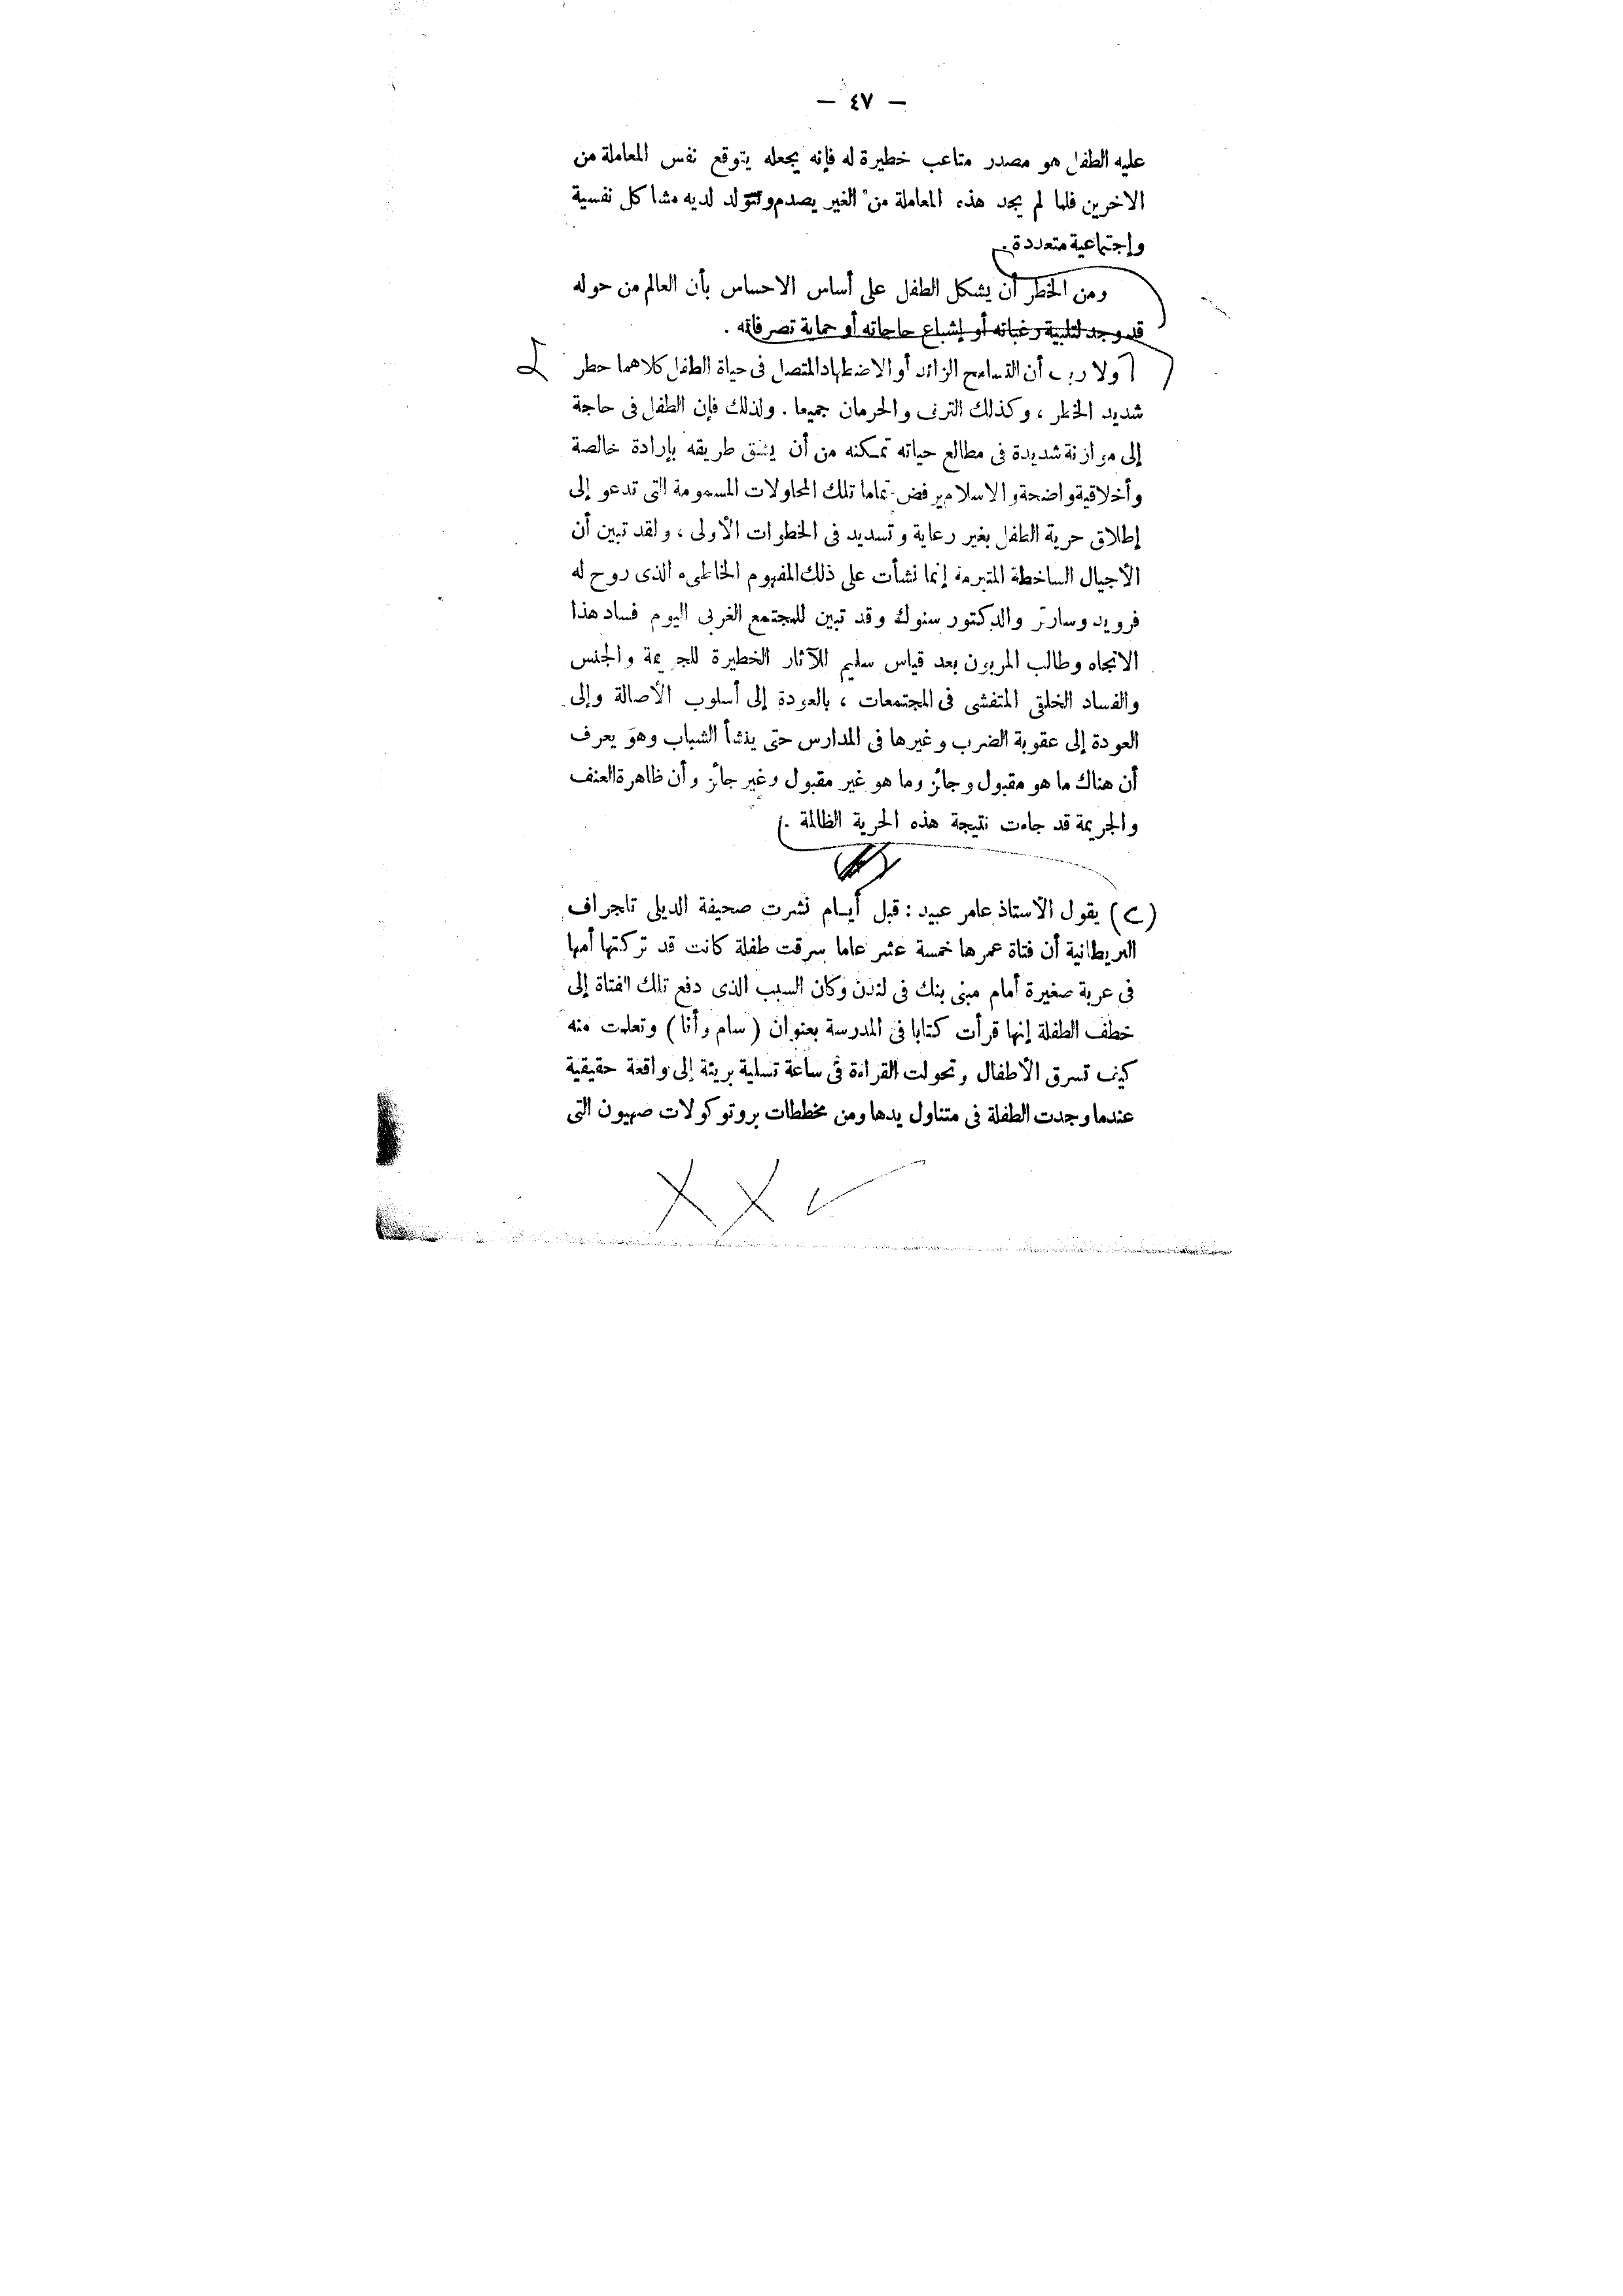 — ٤٧ —
عليه الطفل هو مصدر متاعب خطيرة له فإنه يجعله يتوقع نفس المعاملة من
الاخرين فلما لم يجد هذه المعاملة من الغير يصدم وتتولد لديه مشاكل نفسية
وإجتماعية متعددة .
ومن الخطر أن يشكل الطفل على أساس الاحساس بأن العالم من حوله
قد وجد لتلبية رغباته أو إشباع حاجاته أو حماية تصرفاته .
ولا ريب أن التسامح الزائد أو الاضطهاد المتصل فى حياة الطفل كلاهما خطر
شديد الخطر ، وكذلك الترف والحرمان جميعا . ولذلك فإن الطفل فى حاجة
إلى موازنة شديدة فى مطالع حياته تمكنه من أن يشق طريقه بإرادة خالصة
وأخلاقية واضحة والاسلام يرفض تماما تلك المحاولات المسمومة التى تدعو إلى
إطلاق حرية الطفل بغير رعاية وتسديد فى الخطوات الأولى ، ولقد تبين أن
الأجيال الساخطة المتبرمة إنما نشأت على ذلك المفهوم الخاطىء الذى روح له
فرويد وسارتر والدكتور سنوك وقد تبين للمجتمع الغربى اليوم فساد هذا
الاتجاه وطالب المربون بعد قياس سليم للآثار الخطيرة للجريمة والجنس
والفساد الخلقى المتفشى فى المجتمعات ، بالعودة إلى أسلوب الأصالة وإلى
العودة إلى عقوبة الضرب وغيرها فى المدارس حتى ينشأ الشباب وهو يعرف
أن هناك ما هو مقبول وجائز وما هو غير مقبول وغير جائز وأن ظاهرة العنف
والجريمة قد جاءت نتيجة هذه الحرية الظالمة .
يقول الأستاذ عامر عبيد : قبل أيام نشرت صحيفة الديلى تلجراف
البريطانية أن فتاة عمرها خمسة عشر عاما سرقت طفلة كانت قد تركتها أمها
فى عربة صغيرة أمام مبنى بنك فى لندن وكان السبب الذى دفع تلك الفتاة إلى
خطف الطفلة إنها قرأت كتابا فى المدرسة بعنوان ( سام وأنا ) وتعلمت منه
كيف تسرق الأطفال وتحولت القراءة فى ساعة تسلية بريئة إلى واقعة حقيقية
عندما وجدت الطفلة فى متناول يدها ومن مخططات بروتوكولات صهيون التى